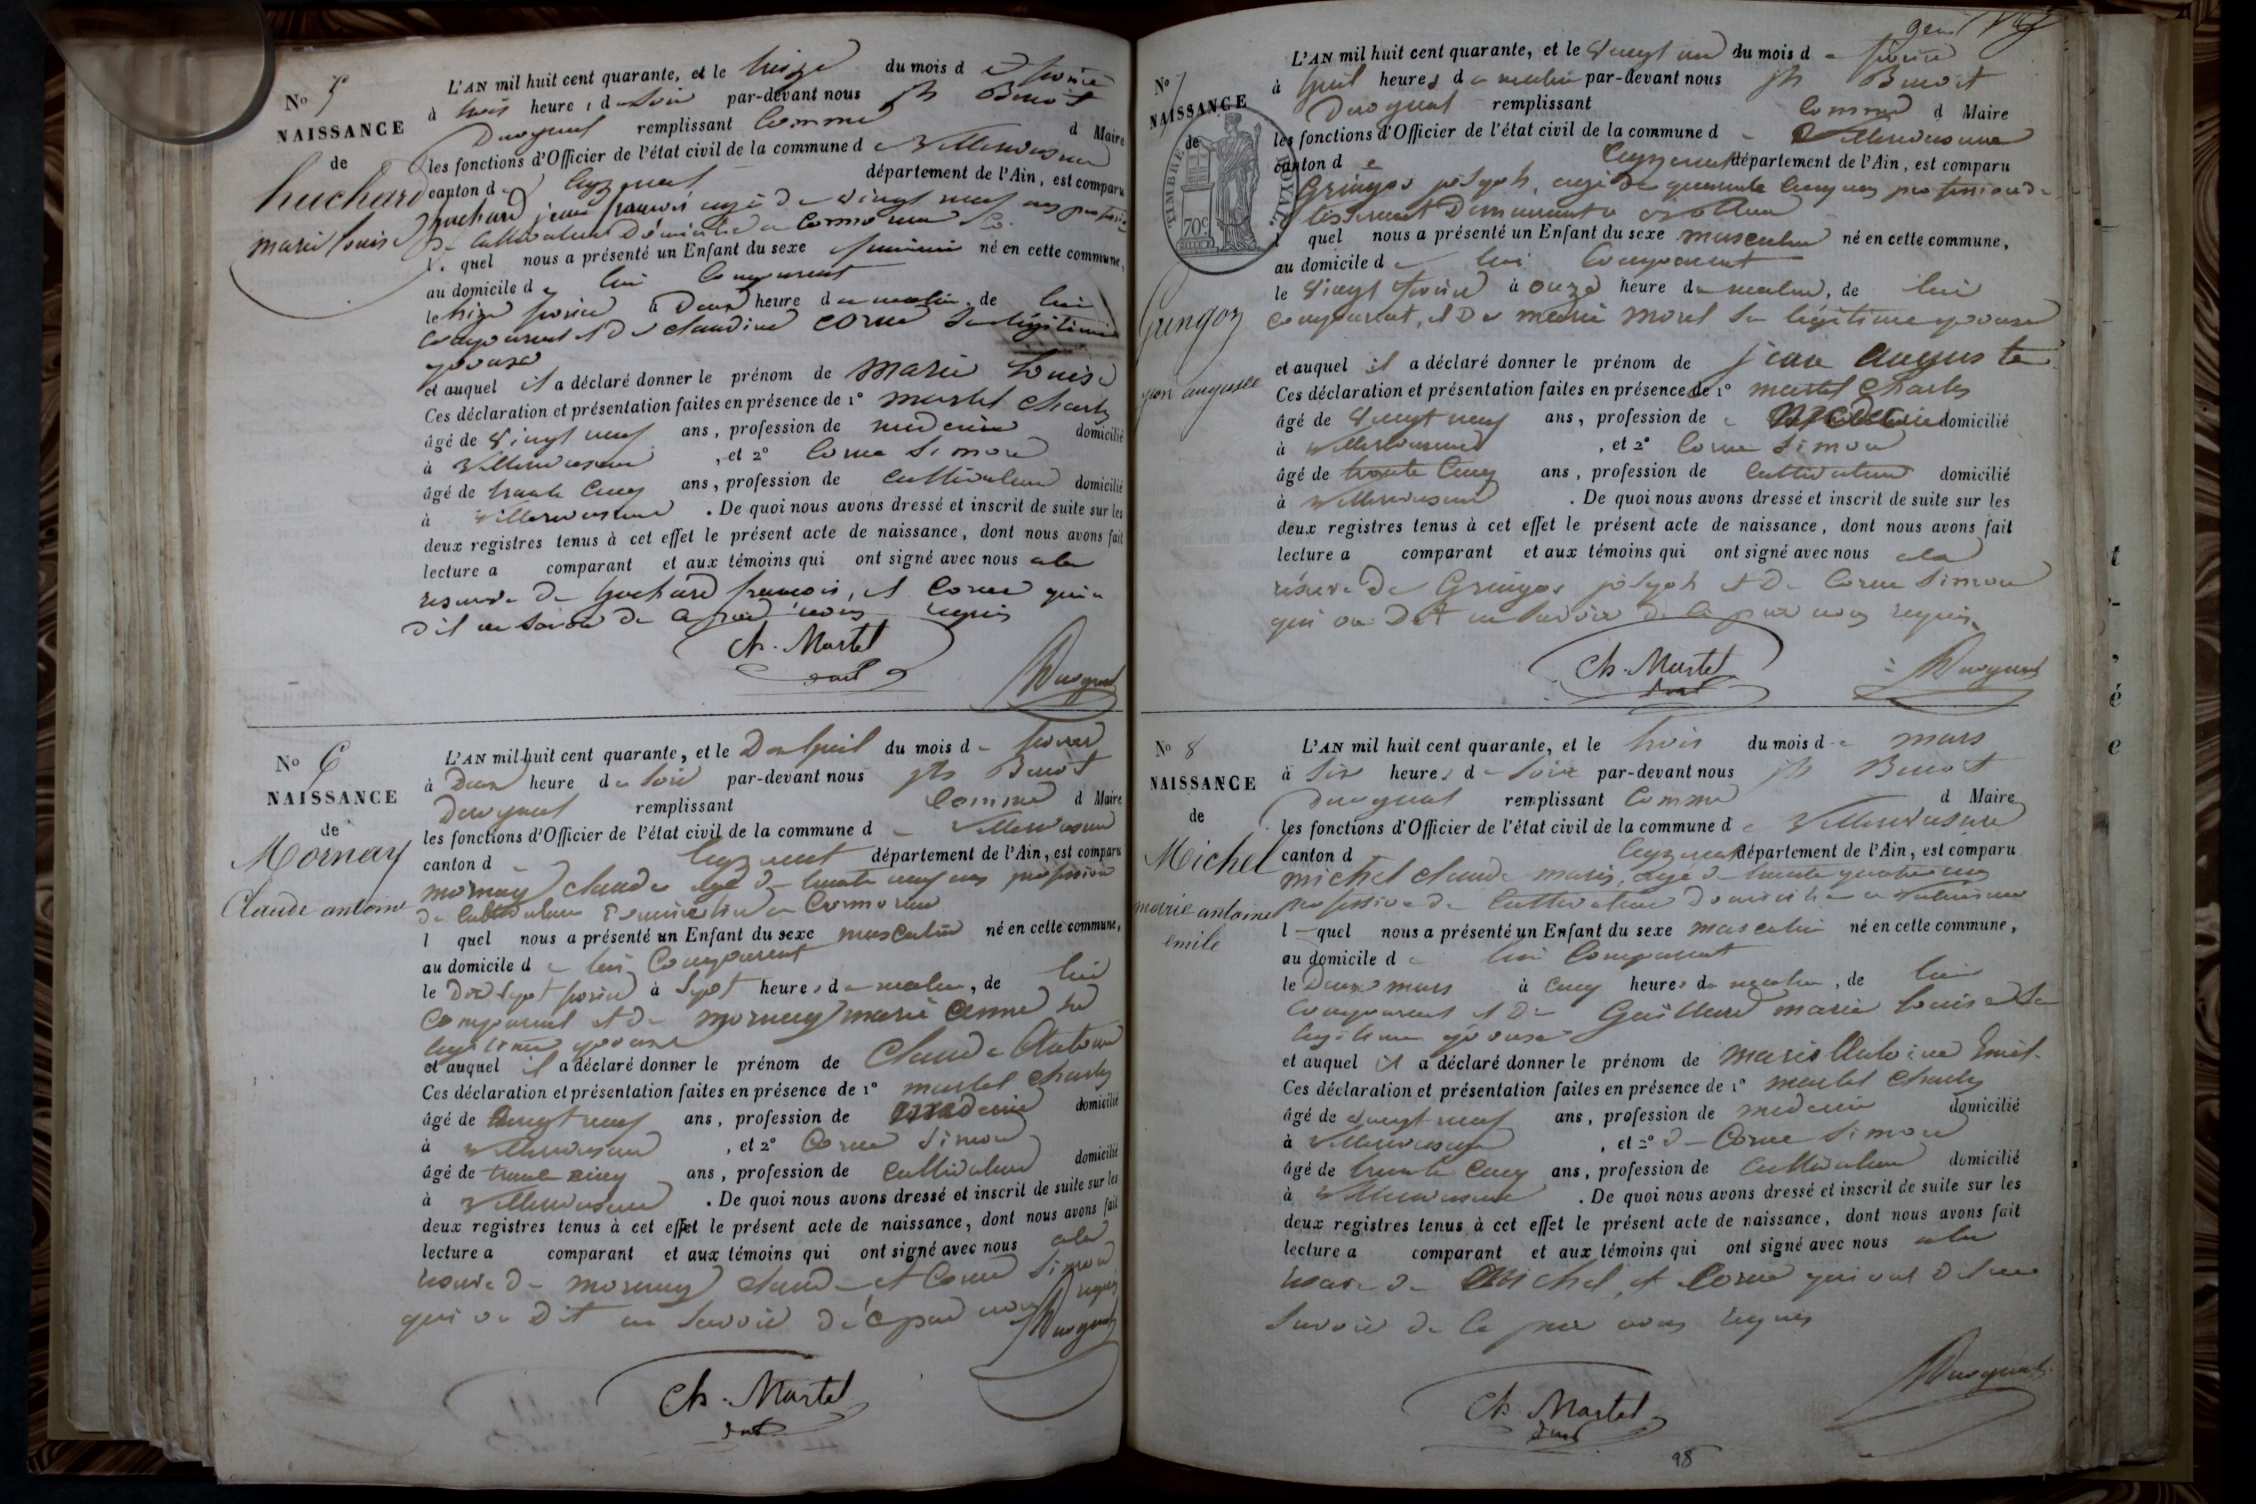 No 5
NAISSANCE
de
huchard
marie louise
L'AN mil huit cent quarante, et le treize du mois d e février
à trois heure s d u soir par-devant nous jh Benoit
Duroquat remplissant comme d Maire
les fonctions d'Officier de l'état civil de la commune d e Villereversure
canton d e Ceyzeriat département de l'Ain, est comparu
huchard jean françois agé de vingt neuf ans profession
de cultivateur domicilié a
l e quel nous a présenté un Enfant du sexe feminin né en cette commune,
au domicile d e lui Comparent
le treize février à Deux heure d u matin, de lui
Comparent et de claudine corne sa légitime
epouse
et auquel il a déclaré donner le prénom de marie louise
Ces déclaration et présentation faites en présence de 1° martel charles
âgé de vingt neuf ans, profession de medecin domicilié
à Villereversure, et 2° Corne Simon
âgé de trente cinq ans, profession de cultivateur domicilié
à Villereversure. De quoi nous avons dressé et inscrit de suite sur les
deux registres tenus à cet effet le présent acte de naissance, dont nous avons fait
lecture a comparant et aux témoins qui ont signé avec nous a la
reserve de huchard francois, et Corne qui on
dit ne savoir de ce par nous requis
Ch. Martel
No 6
NAISSANCE
de
Mornay
Claude antoine
L'AN mil huit cent quarante, et le Dix huit du mois d e février
à Deux heure d u soir par-devant nous jh Benoit
Duroquat remplissant comme d Maire
les fonctions d'Officier de l'état civil de la commune d e Villereversure
canton d Ceyzeriat département de l'Ain, est comparu
mornay claude agé de trente neuf ans profession
de cultivateur domicilié a
l quel nous a présenté un Enfant du sexe masculin né en cette commune,
au domicile d e lui Comparent
le Dix sept février à sept heures d u matin, de lui
Comparent et de mornay marie anne sa
legitime epouse
et auquel il a déclaré donner le prénom de Claude Antoine
Ces déclaration et présentation faites en présence de 1° martel charles
âgé de vingt neuf ans, profession de medecin domicilié
à Villereversure, et 2° Corne Simon
âgé de trente cinq ans, profession de cultivateur domicilié
à Villereversure. De quoi nous avons dressé et inscrit de suite sur les
deux registres tenus à cet effet le présent acte de naissance, dont nous avons fait
lecture a comparant et aux témoins qui ont signé avec nous a la
reserve de mornay claude et Corne Simon
qui on dit ne savoir de ce par nous requis
Ch. Martel
No 7
NAISSANCE
de
Gringoz
jean auguste
TIMBRE ROYAL
70c
L'AN mil huit cent quarante, et le vingt un du mois d e février
à huit heures d u matin par-devant nous jh Benoit
Duroquat remplissant comme d Maire
les fonctions d'Officier de l'état civil de la commune d e Villereversure
canton d e Ceyzeriat département de l'Ain, est comparu
Gringoz joseph, agé de quarante cinq ans profession de
tisserant Demeurant a
l quel nous a présenté un Enfant du sexe masculin né en cette commune,
au domicile d e lui Comparent
le vingt février à onze heure du matin, de lui
comparent, et de marie morel sa légitime epouse
et auquel il a déclaré donner le prénom de jean auguste
Ces déclaration et présentation faites en présence de 1° martel Charles
âgé de vingt neuf ans, profession de medecin domicilié
à Villereversure, et 2° Corne Simon
âgé de trente cinq ans, profession de cultivateur domicilié
à Villereversure. De quoi nous avons dressé et inscrit de suite sur les
deux registres tenus à cet effet le présent acte de naissance, dont nous avons fait
lecture a comparant et aux témoins qui ont signé avec nous a la
réserve de Gringoz joseph et de Corne Simon
qui on dit ne savoir de ce par nous requis
Ch. Martel
No 8
NAISSANCE
de
Michel
marie antoine
emile
L'AN mil huit cent quarante, et le trois du mois d e mars
à six heures d u soir par-devant nous jh Benoit
Duroquat remplissant Comme d Maire
les fonctions d'Officier de l'état civil de la commune d e Villereversure
canton d Ceyzeriat département de l'Ain, est comparu
michel claude marie, agé de trente quatre ans
profession de Cultivateur domicilié a Villereversure
l e quel nous a présenté un Enfant du sexe masculin né en cette commune,
au domicile d e lui Comparent
le Deux mars à cinq heures du matin, de lui
Comparent et de Guillard marie louise sa
legitime epouse
et auquel il a déclaré donner le prénom de marie Antoine Emile
Ces déclaration et présentation faites en présence de 1° martel Charles
âgé de vingt neuf ans, profession de medecin domicilié
à Villereversure, et 2° d e Corne Simon
âgé de trente cinq ans, profession de cultivateur domicilié
à Villereversure. De quoi nous avons dressé et inscrit de suite sur les
deux registres tenus à cet effet le présent acte de naissance, dont nous avons fait
lecture a comparant et aux témoins qui ont signé avec nous a la
reserve de Michel, et Corne qui ont dit ne
savoir de ce par nous requis
Ch. Martel
98